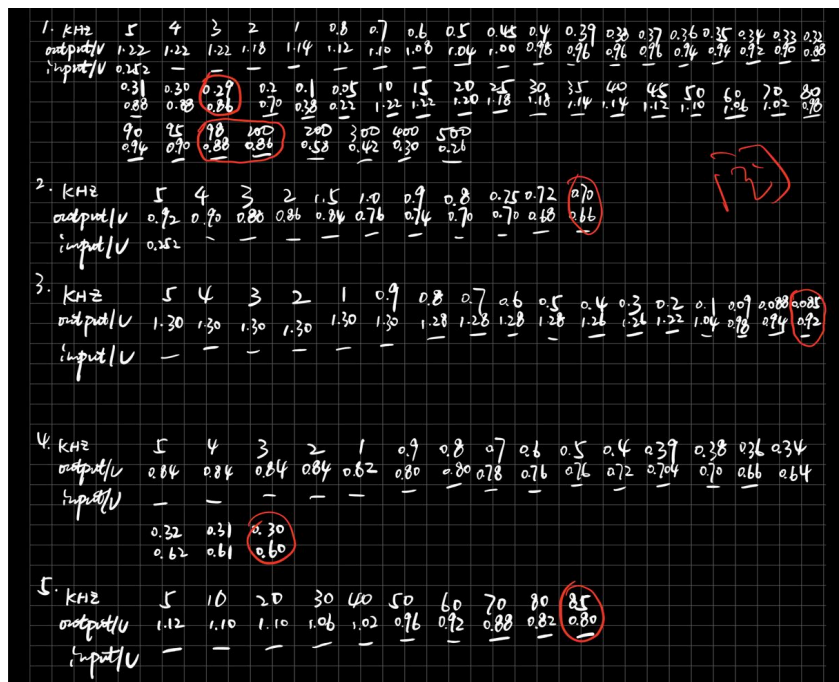 1. KHZ 5 4 3 2 1 0.8 0.7 0.6 0.5 0.45 0.4 0.39 0.38 0.37 0.36 0.35 0.34 0.33 0.32
output/V 1.22 1.22 1.22 1.18 1.14 1.12 1.10 1.08 1.04 1.00 0.98 0.96 0.96 0.96 0.94 0.94 0.92 0.90 0.88
input/V 0.252
0.31 0.30 0.29 0.2 0.1 0.05 10 15 20 25 30 35 40 45 50 60 70 80
0.88 0.88 0.86 0.70 0.38 0.22 1.22 1.22 1.20 1.18 1.18 1.14 1.14 1.12 1.10 1.06 1.02 0.98
90 95 98 200 200 300 400 500
0.94 0.90 0.88 0.86 0.58 0.42 0.30 0.26
2. KHZ 5 4 3 2 1.5 1.0 0.9 0.8 0.75 0.72 0.70
output/V 0.92 0.90 0.88 0.86 0.84 0.76 0.74 0.70 0.70 0.68 0.66
input/V 0.252
3. KHZ 5 4 3 2 1 0.9 0.8 0.7 0.6 0.5 0.4 0.3 0.2 0.1 0.09 0.088 0.085
output/V 1.30 1.30 1.30 1.30 1.30 1.30 1.28 1.28 1.28 1.28 1.26 1.26 1.22 1.04 0.98 0.94 0.92
input/V
4. KHZ 5 4 3 2 1 0.9 0.8 0.7 0.6 0.5 0.4 0.39 0.38 0.36 0.34
output/V 0.84 0.84 0.84 0.84 0.82 0.80 0.80 0.78 0.76 0.76 0.72 0.704 0.70 0.66 0.64
input/V
0.32 0.31 0.30
0.62 0.61 0.60
5. KHZ 5 10 20 30 40 50 60 70 80 85
output/V 1.12 1.10 1.10 1.06 1.02 0.96 0.92 0.88 0.82 0.80
input/V